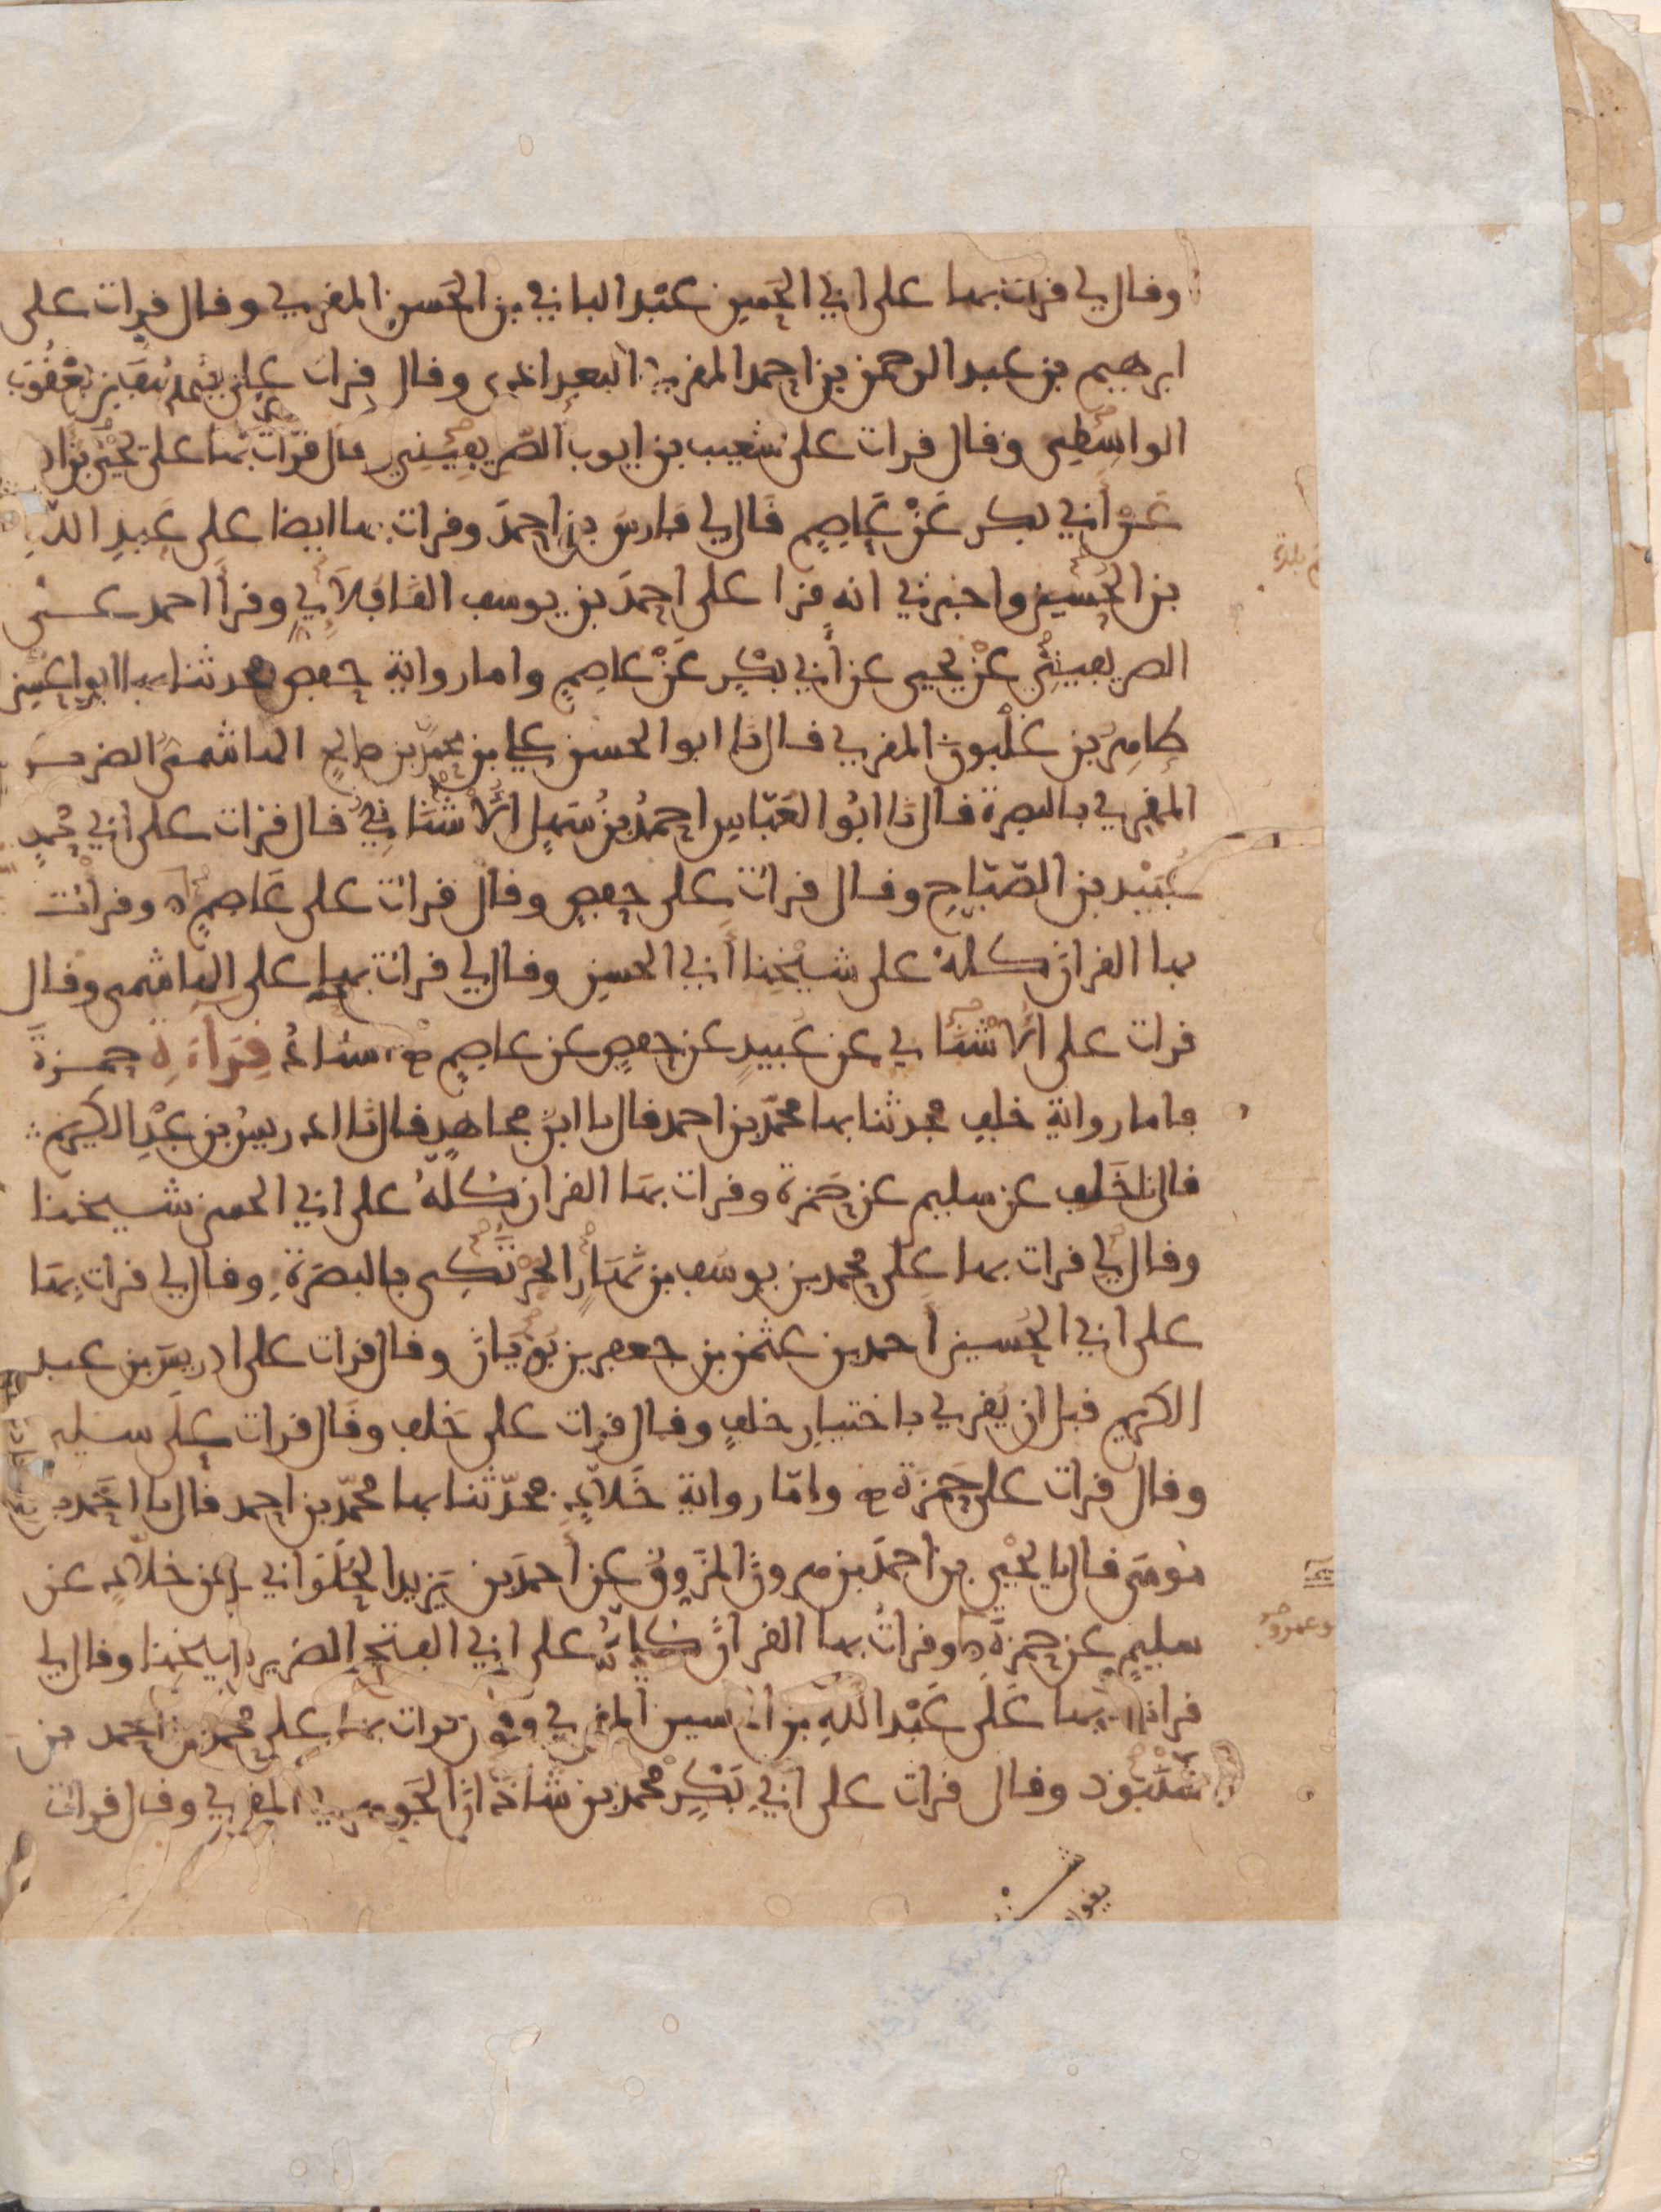 وقال لي قرات بها على ابي الحسن عبد الباقي بن الحسن المقري وقال قرات على
ابرهيم بن عبد الرحمن بن احمد المقري البغداذي وقال قرات على يوسف بن يعقوب
الواسطي وقال قرات على شعيب بن ايوب الصريفيني قال قرات بها على يحيى بن ادم
عن أبي بكر عن عاصم قال لي فارس بن احمد وقرات بها ايضا على عبد الله
بن الحسين واخبرني انه قرا على احمد بن يوسف القافلاني وقرأ احمد على
الصريفيني عن يحيى عن أبي بكر عن عاصم واما رواية حفص فحدثنا بها ابو الحسن
طاهر بن غلبون المقري قال نا ابو الحسن علي بن محمد بن صالح الهاشمي الضرير
المقري بالبصرة قال نا ابو العباس احمد بن سهل الأشناني قال قرات على ابي محمد
عبيد بن الصباح وقال قرات على حفص وقال قرات على عاصم وقرات
بها القران كله على شيخنا أبي الحسن وقال لي قرات بها على الهاشمي وقال
قرات على الأشناني عن عبيد عن حفص عن عاصم اسناد قراءة حمزة
فاما رواية خلف فحدثنا بها محمد بن احمد قال نا ابن مجاهد قال نا ادريس بن عبد الكريم
قال نا خلف عن سليم عن حمزة وقرات بها القران كله على ابي الحسن شيخنا
وقال لي قرات بها على محمد بن يوسف بن نهار الحرتكي بالبصرة وقال لي قرات بها
على ابي الحسين أحمد بن عثمن بن جعفر بن بويان وقال قرات على ادريس بن عبد
الكريم قبل ان يقري باختيار خلف وقال قرات على خلف وقال قرات على سليم
وقال قرات على حمزة واما رواية خلاد فحدثنا بها محمد بن احمد قال نا احمد بن
موسى قال نا يحيى بن احمد بن هرون المزوق عن أحمد بن يزيد الحلواني عن خلاد عن
سليم عن حمزة وقرات بها القران كله على ابي الفتح الضرير شيخنا وقال لي
قرات بها على عبد الله بن الحسين المقري وقال قرات بها على محمد بن احمد بن
شنبوذ وقال قرات على ابي بكر محمد بن شاذان الجوهري المقري وقال قرات